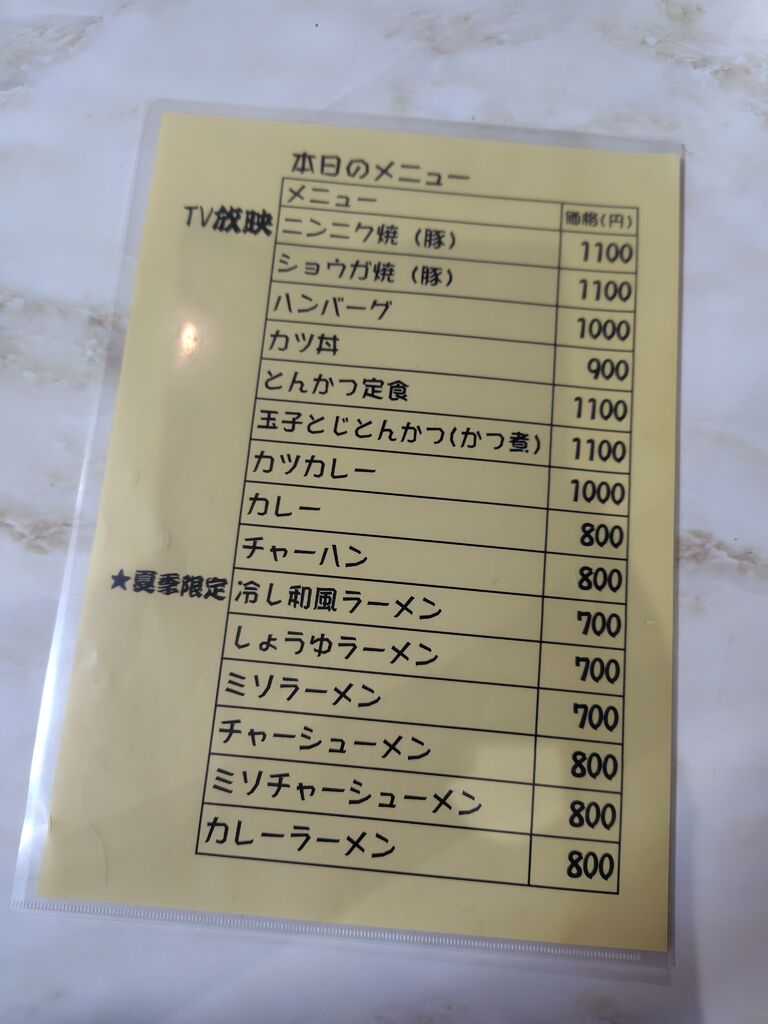 本日のメニュー
メニュー 価格(円)
TV放映 ニンニク焼 (豚) 1100
ショウガ焼 (豚) 1100
ハンバーグ 1000
カツ丼 900
とんかつ定食 1100
玉子とじとんかつ(かつ煮) 1100
カツカレー 1000
カレー 800
チャーハン 800
★夏季限定 冷し和風ラーメン 700
しょうゆラーメン 700
ミソラーメン 700
チャーシューメン 800
ミソチャーシューメン 800
カレーラーメン 800